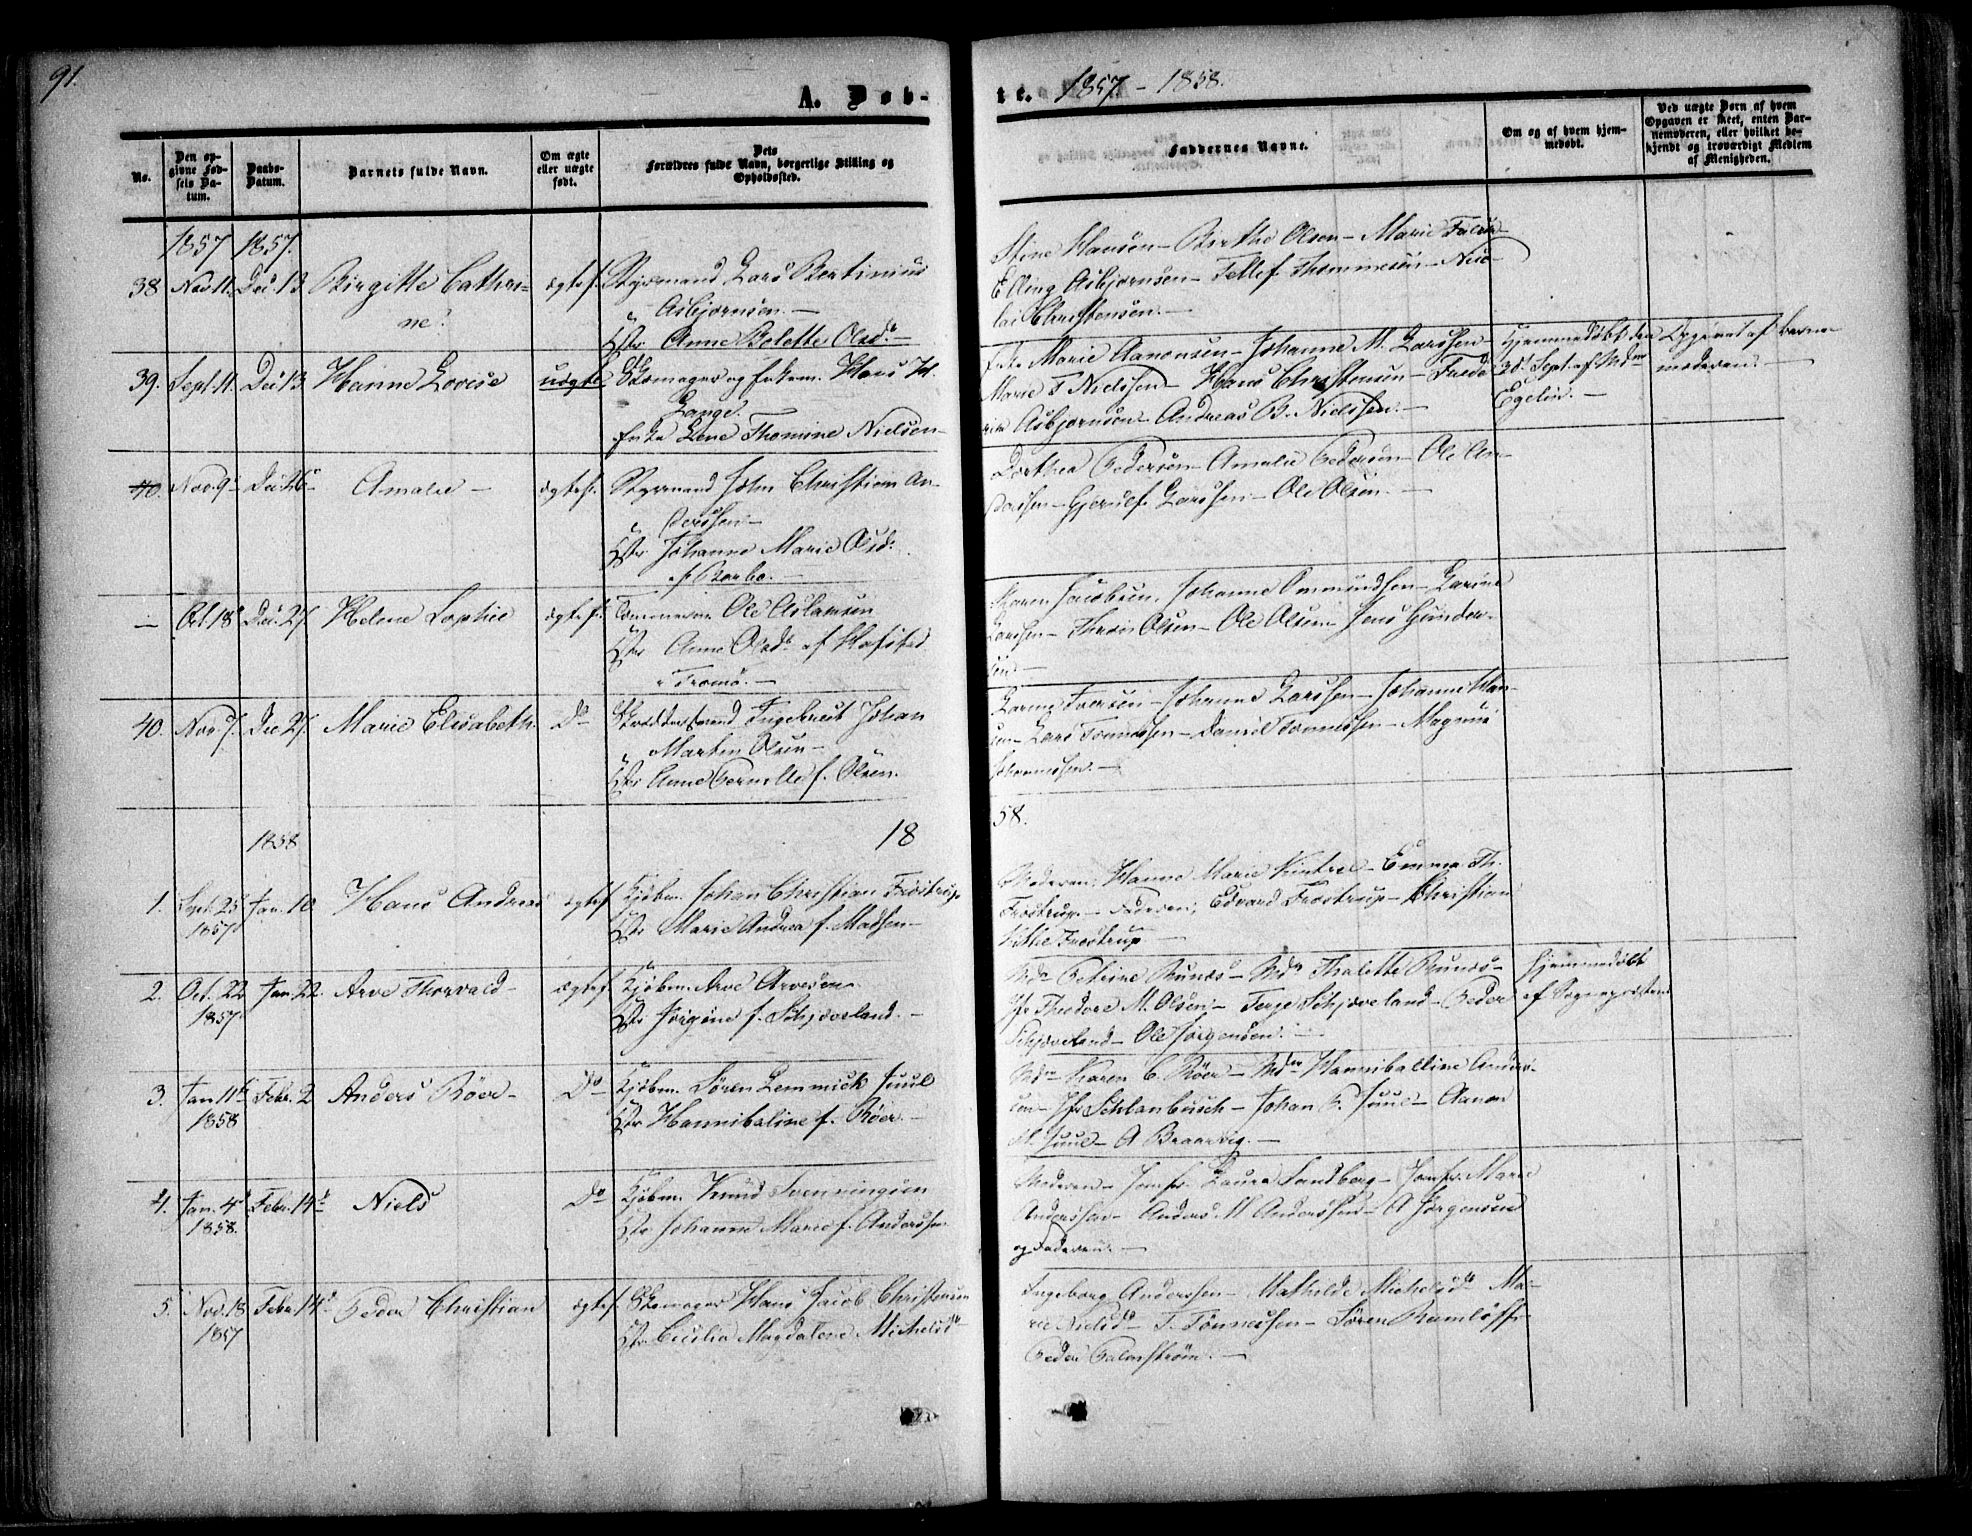 91.
A. Døb-
te. 1857. - 1858.
No.
Den op-
givne Fød-
sels Da-
tum.
Daabs-
Datum.
Barnets fulde Navn.
Om ægte
eller uægte
født.
Dets
Forældres fulde Navn, borgerlige Stilling og
Opholdssted.
Faddernes Navne.
Om og af hvem hjem-
medøbt.
Ved uægte Børn af hvem
Opgaven er skeet, enten Bar-
nemoderen, eller hvilket be-
kjendt og troværdigt Medlem
af Menigheden.
1857 1857.
38 Nov 11. Dec. 13 Birgitte Cathri-
ne.
ægtef. Styrmand Lars Bertinius
Asbjørnsen. —
Hstr Anne Bolette Olsdr —
Hansen — Birthe Olsen — Marie
Elling Asbjørnsen — Tellef Thommesen — Nico-
lai Christensen. —
39. Sept. 11. Dec. 13 Hanne Lovise
uægte Skomager og Enkem. Hans H.
Lange. —
Enke Lene Thomine Nielsen —
Enke Marie Aanonsen — Johanne M. Larssen —
Marie T Nielssen — Hans Christensen — Frede-
rik Asbjørnsen — Andreas B. Nielssen. —
Hjemmedøbt den
30. Sept. af Mdm
Egelin. —
Opgivet af Barne-
moderen. —
40. Nov. 9 Dec. 26 Amalie —
ægtef. Styrmand John Christian An-
derssen —
Hstr Johanne Marie Olsdr
af Barbo. —
Dorthea Pedersen — Amalie Pedersen — Ole An-
derssen — Gjerulf Larssen — Ole Olsen. —
— Oct. 18 Dec. 27 Helene Sophie
ægtef. Tømmerm. Ole Aslaksen
Hstr Anne Olsdr af Hofsted
i Tromø. —
Karen Jacobsen, Johanne Ommundsen — Karine
Larssen — Olsen — Ole Olsen Jens Gunder-
sen. —
40. Nov 7. Dec 27. Marie Elisabeth.
Do Ingebret Johan
Martin Olsen —
Hstr Anne Pernille f. Olsen.
Iversen — Johanne Larssen — Johanne Han-
sen — Lars Tønnessen — Daniel Tønnessen — Magnus
Johannessen. —
1858
18
58.
1. Sept. 25 Jan. 10 Hans Andreas
1857
ægtef. Kjøbm. Johan Christian Frøstrup
Hstr Marie Andrea f. Madsen —
Moderen, Hanne Marie — Emma Th.
Frøstrup. — Faderen, Edvard Frøstrup — Christian
Frøstrup —
2. Oct. 22 Jan. 22. Arve Thorvald —
1857.
ægtef Kjøbm. Arve Arvesen
Hstr Jørgine f. Schjæveland. —
Mdm Petrine — Mdm Thalette —
Jfr Theodore M. Olsen — Terje Schjæveland — Peder
Schjæveland — Ole Jørgensen. —
Hjemmedøbt
af Sognepresten
3. Jan 11te Febr. 2 Anders Röer —
1858
Do Kjøbm. Søren Lemmick Juul
Hstr Hannibaline f. Röer. —
Mdm Karen C. Röer — Mdm Hanniballine Anders-
sen — Jfr Schlanbusch — Johan P. Juul — Aanon
H. Juul — A Braarvig. —
4. Jan. 4de Febr. 14de Niels
1858.
Do Kjøbm. Knud Svenningsen
Hstr Johanne Marie f. Anderssen.
Moderen — Jomfr. Laura Sandberg — Jomfr. Marie
Anderssen — Anders M Anderssen — A Jørgensen
og Faderen. —
5. Nov. 18 Febr. 14de Peder Christian
1857
ægtef. Skomager Hans Jacob Christensen
Hstr Cecilia Magdalene Michelsdr
Ingeborg Anderssen — Mathilde Michelsdr Ma-
rie Nielsdr — T. Tønnessen — Søren
Peder Palmstrøm. —